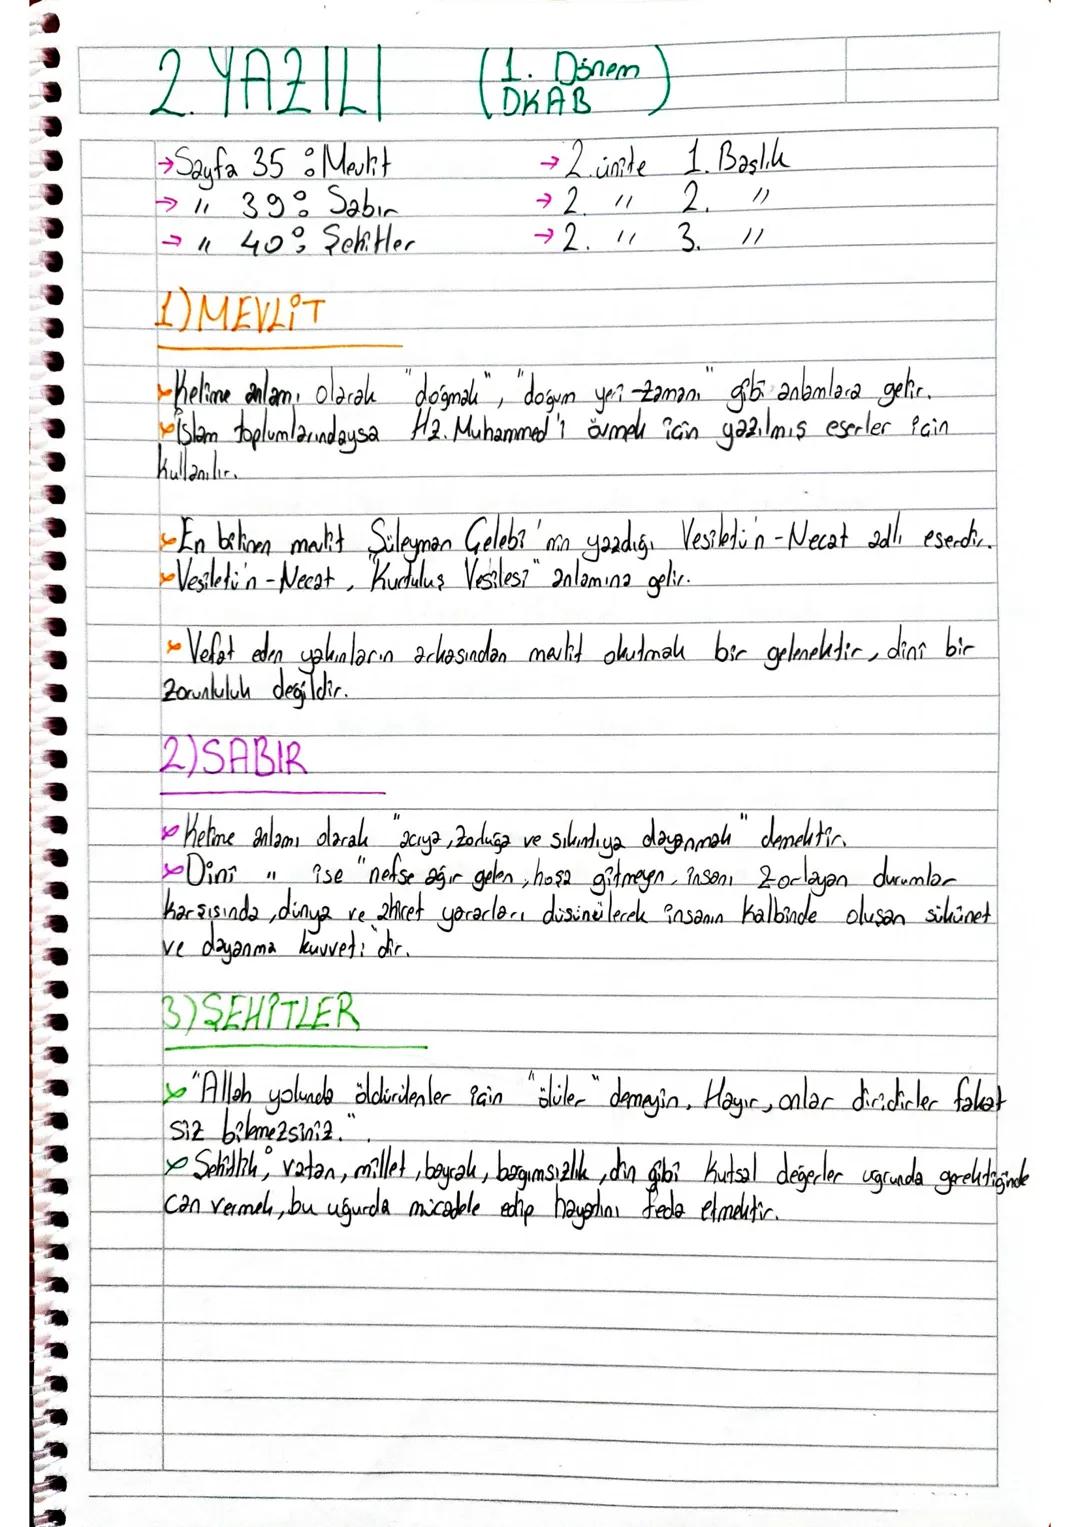 2. YAZILI (1. Dönem DKAB)
→ Sayfa 35 : Mevlit → 2. ünite 1. Başlık
→ " 39 : Sabır → 2. " 2. "
→ " 40 : Şehitler → 2. " 3. "
1) MEVLİT
Kelime anlamı olarak "doğmak", "doğum yeri-zamanı" gibi anlamlara gelir.
İslam toplumlarındaysa Hz. Muhammed'i övmek için yazılmış eserler için
kullanılır.
En bilinen mevlit Süleyman Çelebi'nin yazdığı Vesiletü'n-Necat adlı eserdir.
Vesiletü'n-Necat, "Kurtuluş Vesilesi" anlamına gelir.
Vefat eden yakınların arkasından mevlit okutmak bir gelenektir, dinî bir
zorunluluk değildir.
2) SABIR
Kelime anlamı olarak "acıya, zorluğa ve sıkıntıya dayanmak" demektir.
Dinî " ise "nefse ağır gelen, hoşa gitmeyen, insanı zorlayan durumlar
karşısında, dünya ve ahiret yararları düşünülerek insanın kalbinde oluşan sükûnet
ve dayanma kuvveti"dir.
3) ŞEHİTLER
"Allah yolunda öldürülenler için "ölüler" demeyin. Hayır, onlar diridirler fakat
siz bilmezsiniz.".
Şehitlik; vatan, millet, bayrak, bağımsızlık, din gibi kutsal değerler uğrunda gerektiğinde
can vermek, bu uğurda mücadele edip hayatını feda etmektir.